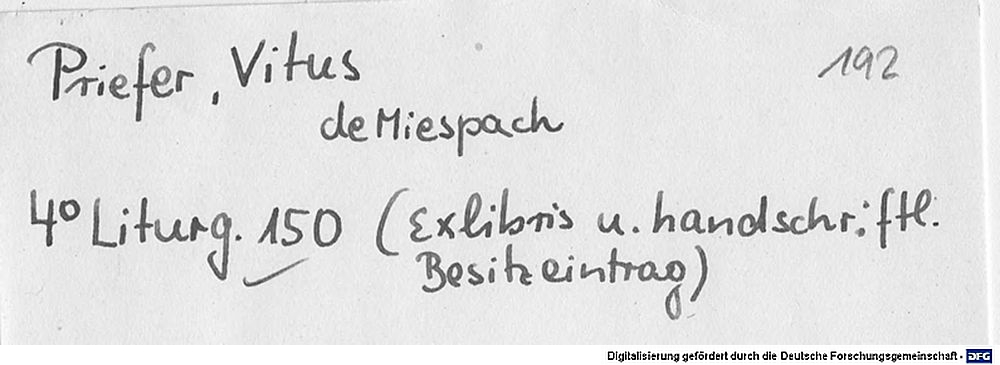 Priefer, Vitus 192
de Miespach
4° Liturg. 150 (Exlibris u. handschriftl.
Besitzeintrag)
Digitalisierung gefördert durch die Deutsche Forschungsgemeinschaft - DFG